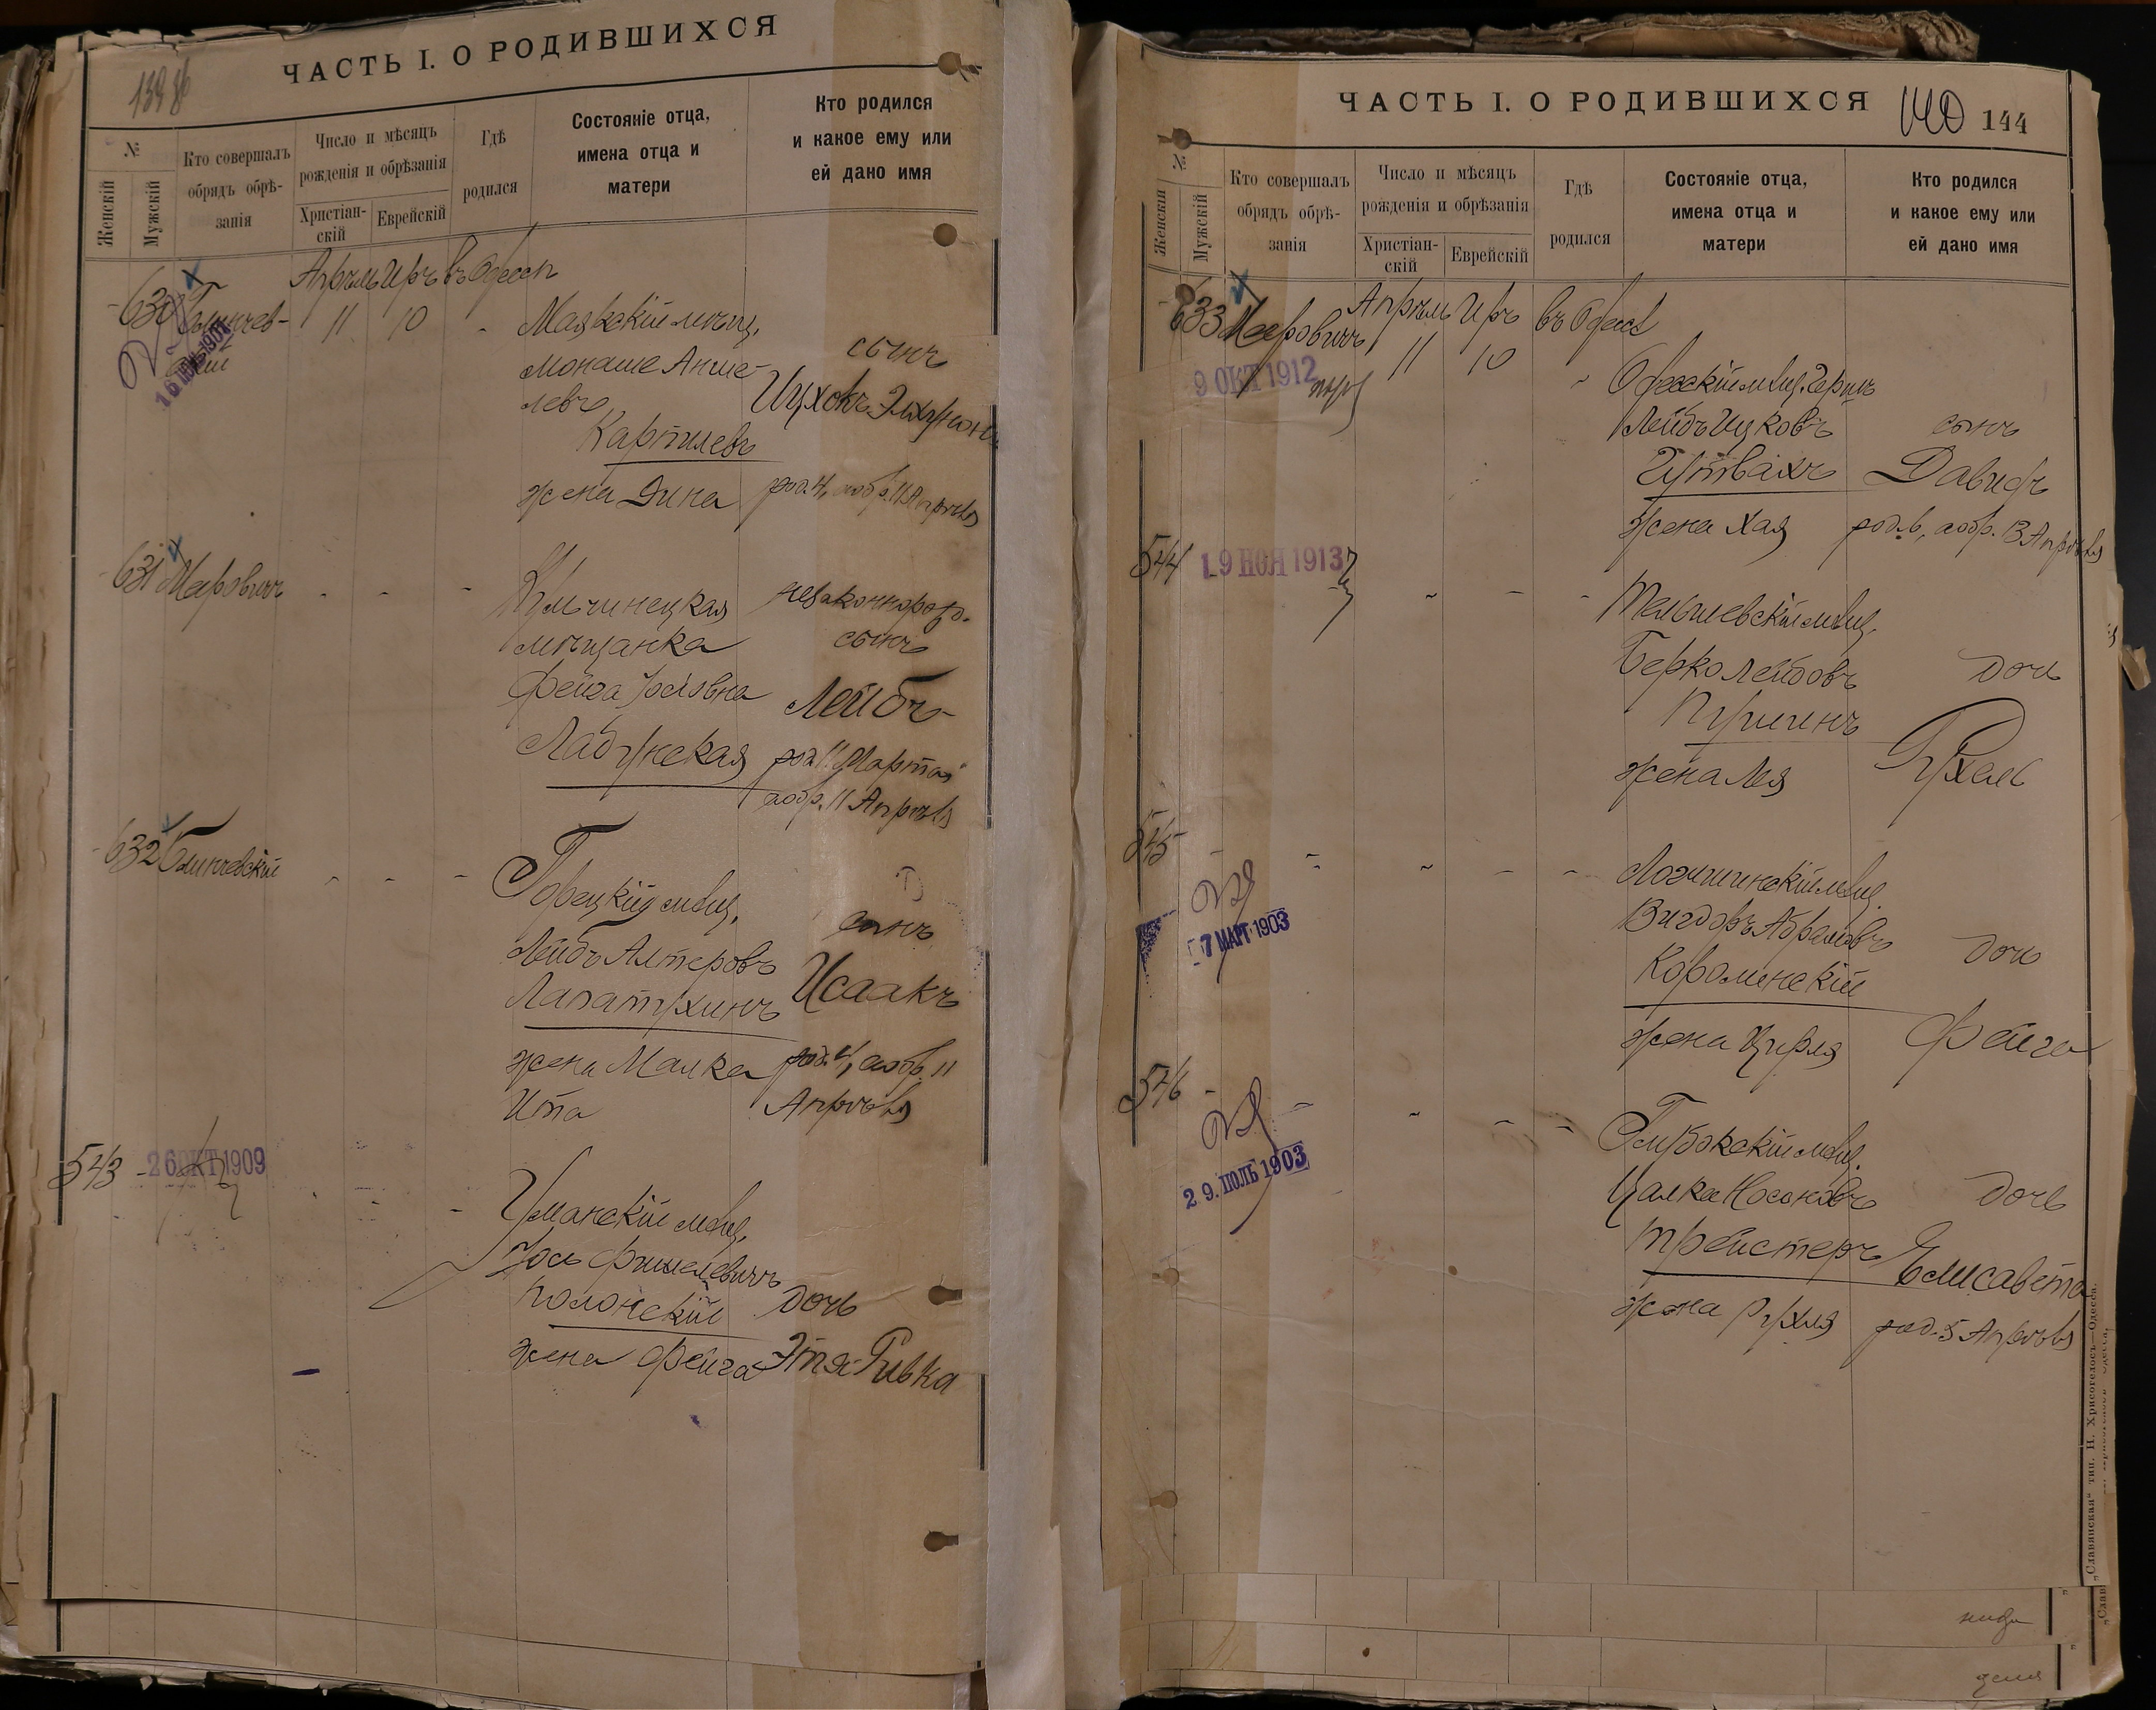 ЧАСТЬ I. О РОДИВШИХСЯ
№
Женскій
Мужскій
Кто совершалъ
обрядъ обрѣ-
занія
Число и мѣсяцъ
рожденія и обрѣзанія
Христіан-
скій
Еврейскій
Гдѣ
родился
Состояніе отца,
имена отца и
матери
Кто родился
и какое ему или
ей дано имя
Апрѣль Иръ въ Одессѣ
630
11 10
16
1901
Маякскій мѣщ.
Монаше Анше-
левъ
жена Дина
сынъ
Ицхокъ
род. 4, а обр. 11 Апрѣля
631 Мееровичъ
мѣщанка
Фейга
незаконнорожд.
сынъ
Лейбъ
род. 11 Марта
а обр. 11 Апрѣля
632 Блинчевскій
Горецкій мѣщ.
Лейбъ Алтеровъ
Лапатухинъ
жена Малка
Ита
сынъ
Исаакъ
род. 4, а обр. 11
Апрѣля
543
26 ОКТ 1909
Уманскій мѣщ.
Іось Фишелевичъ
Полонскій
жена Фейга
дочь
Этя-Ривка
ЧАСТЬ I. О РОДИВШИХСЯ
140 144
№
Женскій
Мужскій
Кто совершалъ
обрядъ обрѣ-
занія
Число и мѣсяцъ
рожденія и обрѣзанія
Христіан-
скій
Еврейскій
Гдѣ
родился
Состояніе отца,
имена отца и
матери
Кто родился
и какое ему или
ей дано имя
Апрѣль Иръ въ Одессѣ
633 Мееровичъ
11 10
9 ОКТ 1912
Одесскій мѣщ.
Лейбъ Ицковъ
Гутвахъ
жена Хая
сынъ
Давидъ
род. 6, а обр. 13 Апрѣля
544
19 НОЯ 1913
Тельшевскій мѣщ.
Берко Лейбовъ
жена Лея
дочь
Рухель
545
7 МАРТ 1903
Логишинскій мѣщ.
Вигдоръ Абрамовъ
жена Цирля
дочь
Фейга
546
29. ІЮЛЬ 1903
Глубокскій мѣщ.
Цалка Носоновъ
Трейстеръ
жена Рухля
дочь
Елисавета
род. 5 Апрѣля
„Славянская“ тип. Н. Хрисогелосъ—Одесса.